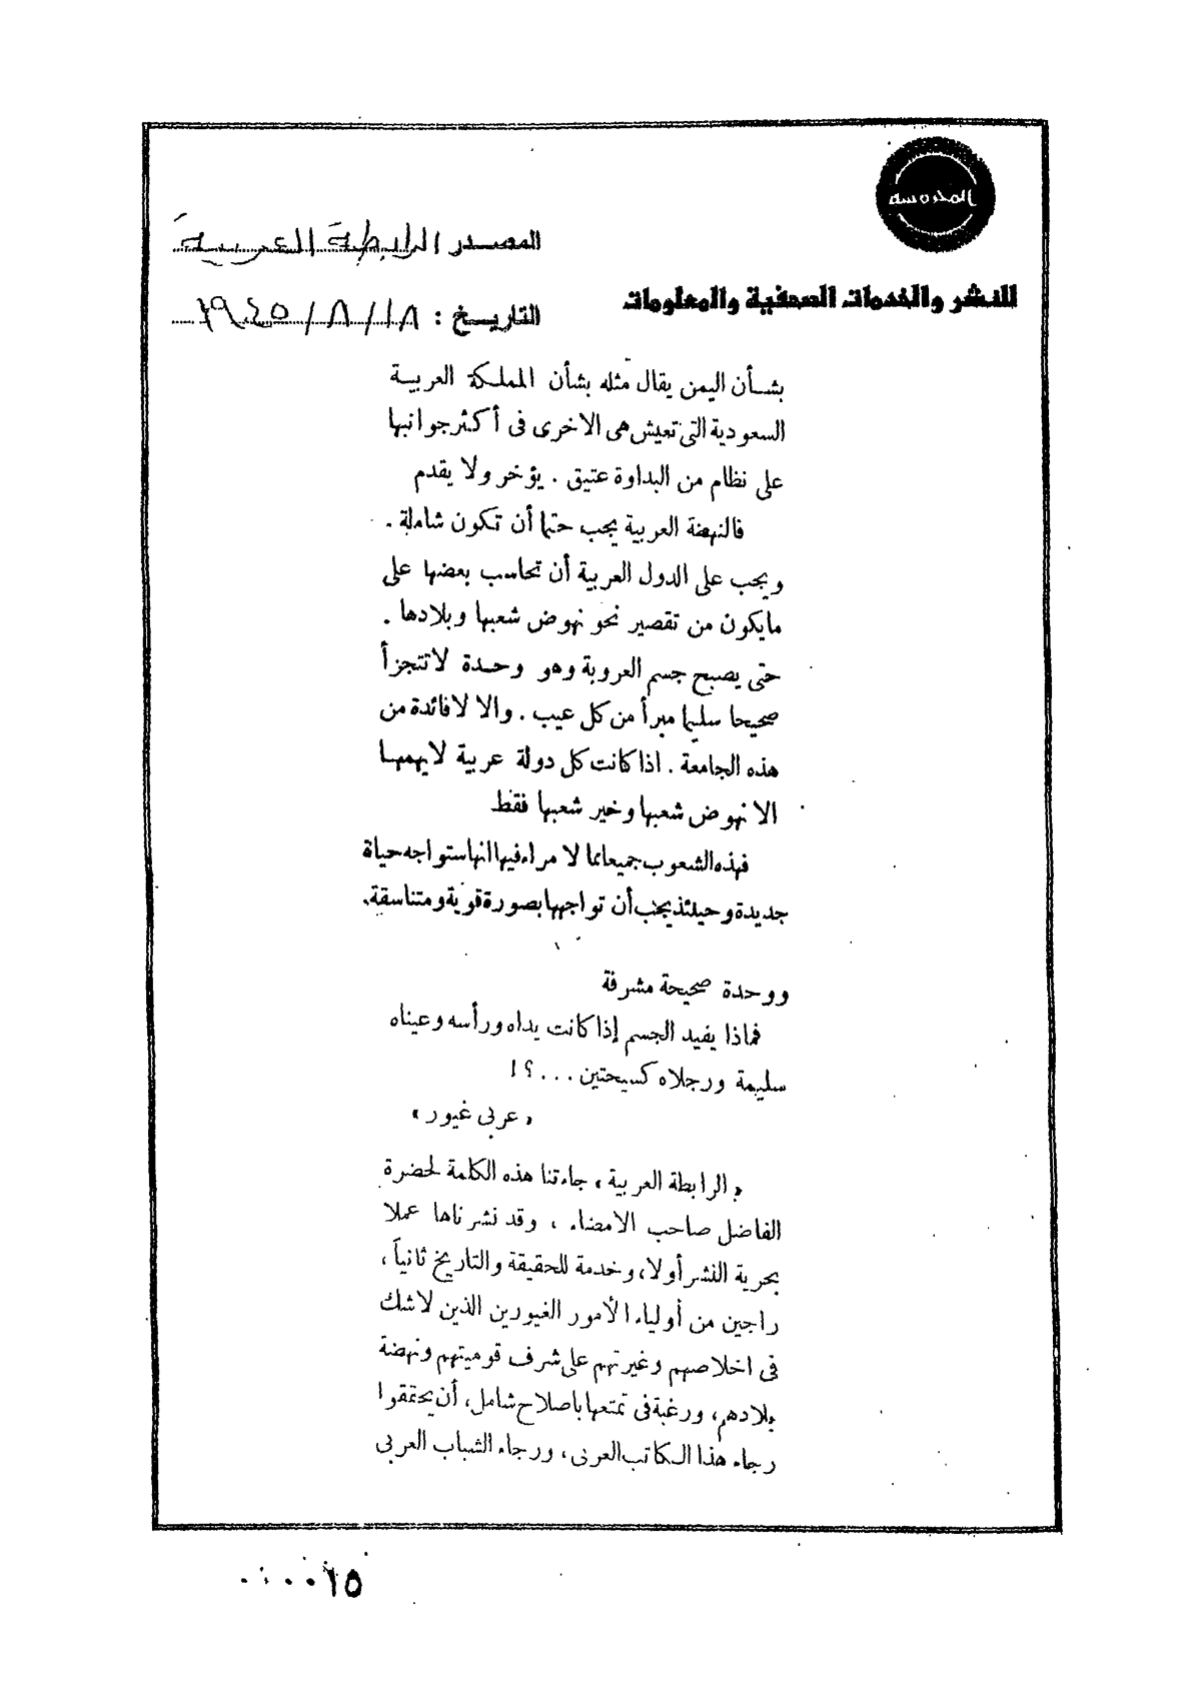 المحروسة
للنشر والخدمات الصحفية والمعلومات
المصدر الرابطة العربية
التاريخ : ١٨/٨/١٩٤٥
بشأن اليمن يقال مثله بشأن المملكة العربية
السعودية التى تعيش هى الاخرى فى أكثر جوانبها
على نظام من البداوة عتيق . يؤخر ولا يقدم
فالنهضة العربية يجب حتما أن تكون شاملة .
ويجب على الدول العربية أن تحاسب بعضها على
ما يكون من تقصير نحو نهوض شعبها وبلادها .
حتى يصبح جسم العروبة وهو وحدة لا تتجزأ
صحيحا سليما مبرأ من كل عيب . والا لا فائدة من
هذه الجامعة . اذا كانت كل دولة عربية لا يهمها
الا نهوض شعبها وخير شعبها فقط
فهذه الشعوب جميعا مما لا مراء فيها انها ستواجه حياة
جديدة وحينئذ يجب أن تواجهها بصورة قوية ومتناسقة.
ووحدة صحيحة مشرفة
فماذا يفيد الجسم إذا كانت يداه ورأسه وعيناه
سليمة ورجلاه كسيحتين ...؟!
« عربى غيور »
« الرابطة العربية » جاءتنا هذه الكلمة لحضرة
الفاضل صاحب الامضاء ، وقد نشرناها عملا
بحرية النشر أولا، وخدمة للحقيقة والتاريخ ثانياً ،
راجين من أولياء الأمور الغيورين الذين لا شك
فى اخلاصهم وغيرتهم على شرف قوميتهم ونهضة
بلادهم، ورغبة فى تمتعها باصلاح شامل، أن يحققوا
رجاء هذا الكاتب العربى، ورجاء الشباب العربى
٠٠٠٠١٥